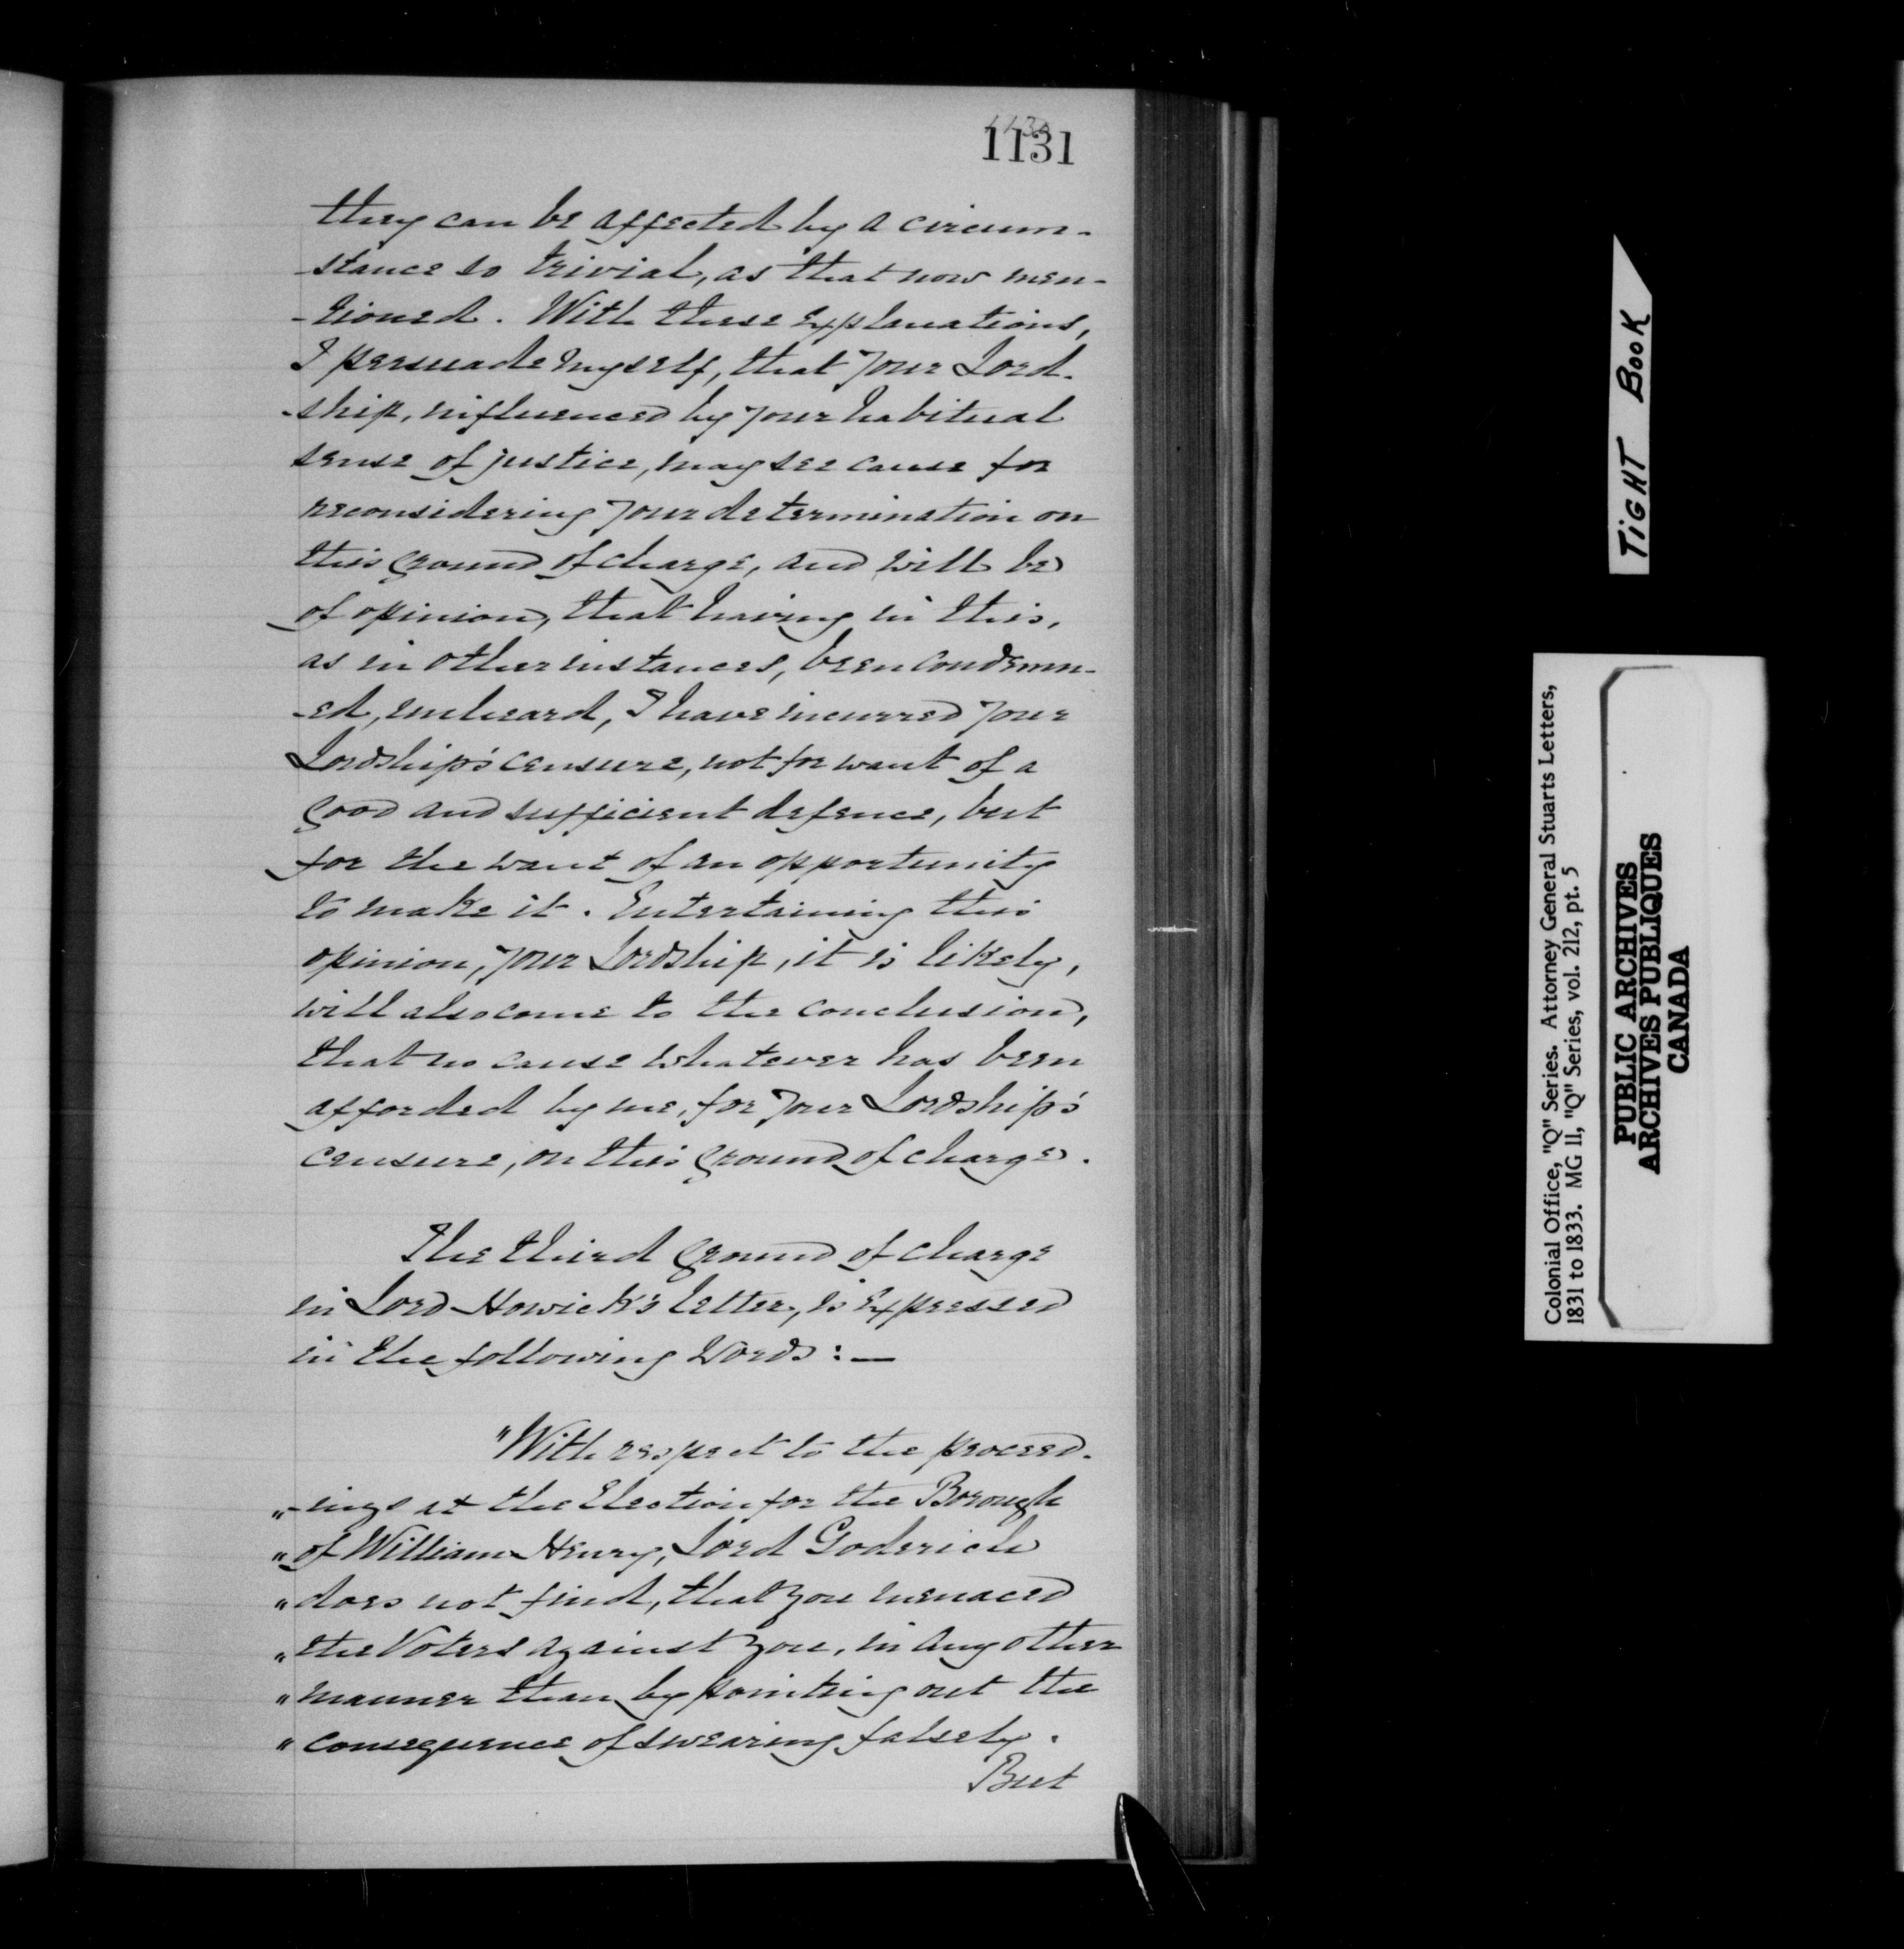 1130
1131
they can be affected by a circum-
-stance so trivial, as that now men-
-tioned. With these explanations,
I persuade myself, that your Lord-
-ship, influenced by your habitual
sense of justice, may see cause for
reconsidering your determination on
this ground of charge, and will be
of opinion, that having in this,
as in other instances, been condemn-
-ed, unheard, I have incurred your
Lordship's censure, not for want of a
good and sufficient defence, but
for the want of an opportunity
to make it. Entertaining this
opinion, your Lordship, it is likely,
will also come to the conclusion,
that no cause whatever has been
afforded by me, for your Lordship's
censure, on this ground of charge.
The third ground of charge
in Lord Howick's letter, is expressed
in the following words:—
"With respect to the proceed-
"-ings at the Election for the Borough
"of William Henry, Lord Goderich
"does not find, that you menaced
"the Voters against you, in any other
"manner than by pointing out the
"consequence of swearing falsely.
But
TIGHT BOOK
Colonial Office, "Q" Series. Attorney General Stuarts Letters,
1831 to 1833. MG 11, "Q" Series, vol. 212, pt. 5
PUBLIC ARCHIVES
ARCHIVES PUBLIQUES
CANADA